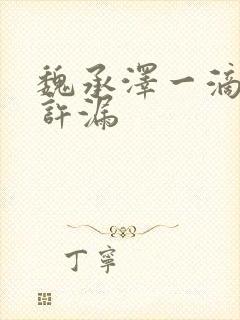 魏承澤一滴
許漏
丁寧